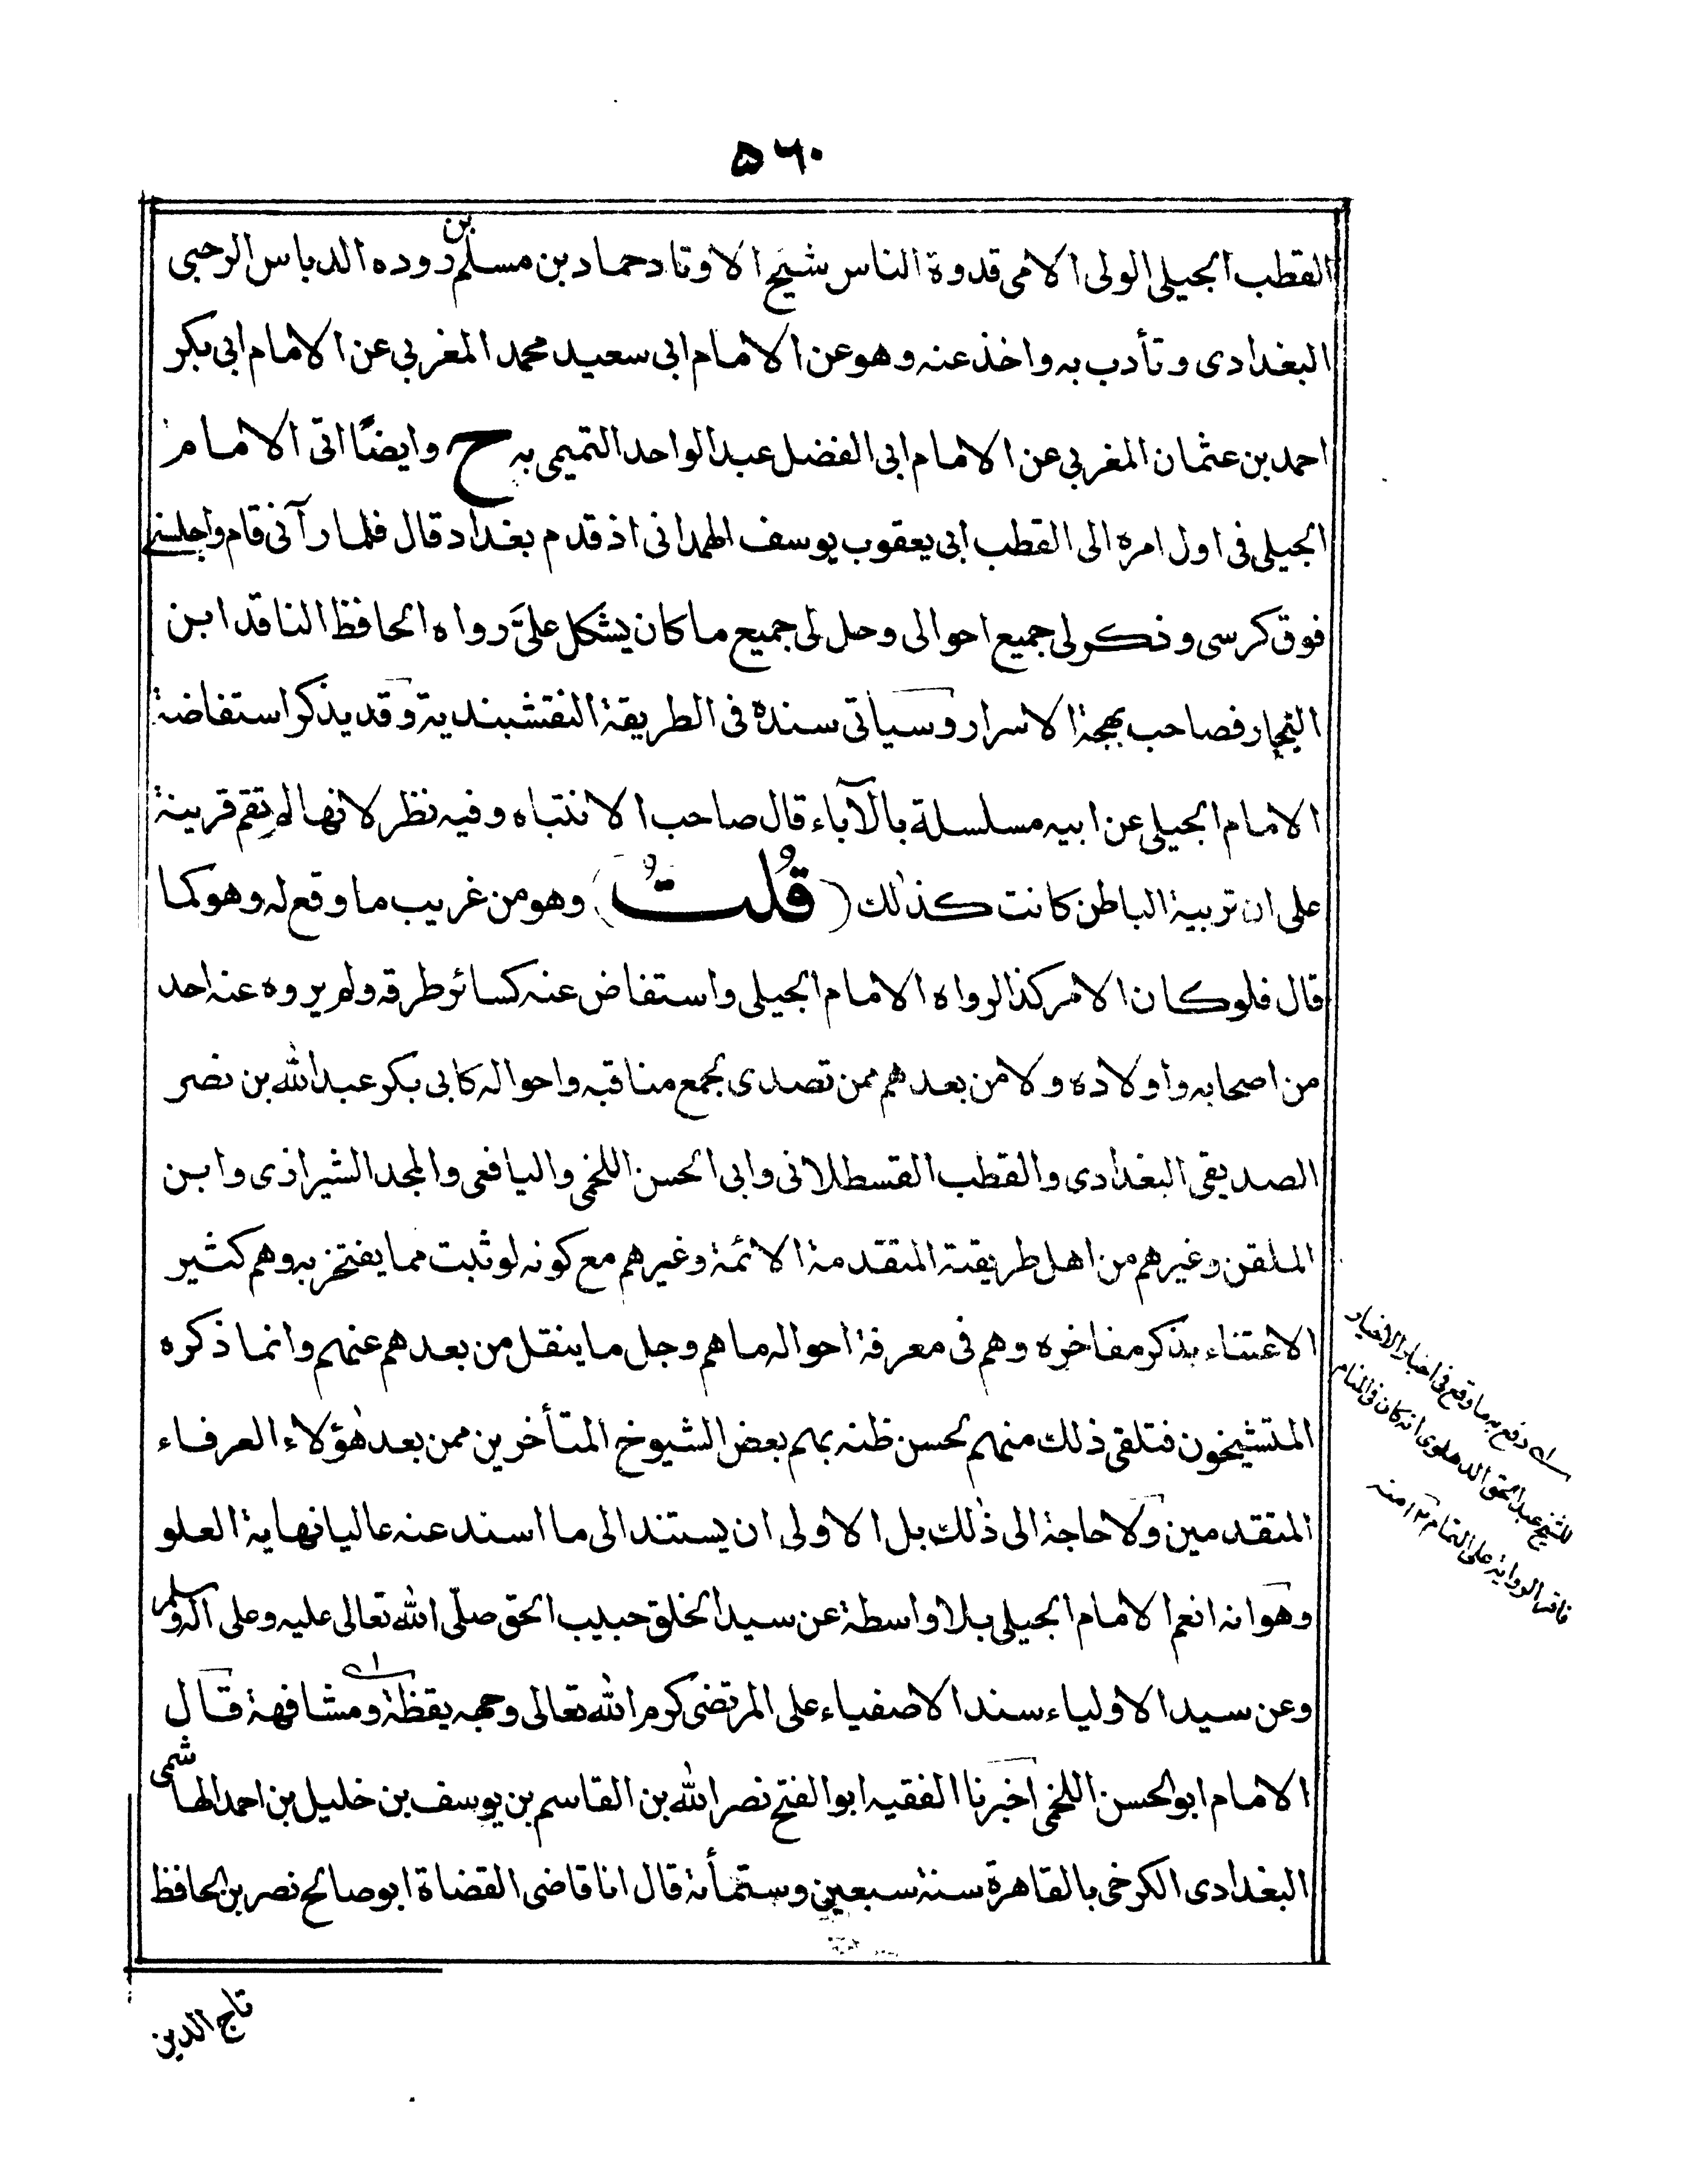 ۵۶۰
القطب الجيلى الولى الامى قدوة الناس شيخ الاوتاد حماد بن مسلم بن دوده الدباس الرحبى
البغدادى وتأدب به واخذ عنه وهو عن الامام ابى سعيد محمد المغربي عن الامام ابى بكر
احمد بن عثمان المغربي عن الامام ابى الفضل عبد الواحد التميمى به ح وايضًا اتى الامام
الجيلى فى اول امره الى القطب ابى يعقوب يوسف الهمدانى اذ قدم بغداد قال فلما رآنى قام واجلسنے
فوق كرسى وذكر لى جميع احوالى وحل لى جميع ما كان يشكل علىَّ رواه الحافظ الناقد ابن
النجار فصاحب بهجة الاسرار وسياتى سنده فى الطريقة النقتشبندية وقد يذكر استفاضة
الامام الجيلى عن ابيه مسلسلة بالآباء قال صاحب الانتباه وفيه نظر لانها لم تقم قرينة
على ان تربية الباطن كانت كذلك (قُلتُ) وهو من غريب ما وقع له وهو كما
قال فلو كان الامر كذا لرواه الامام الجيلى واستفاض عنه كسائر طرقه ولم يروه عنه احد
من اصحابه وأولاده ولا من بعدهم ممن تصدى لجمع مناقبه واحواله كابى بكر عبد الله بن نصر
الصديقى البغدادى والقطب القسطلانى وابى الحسن اللخمى واليافعى والمجد الشيرازى وابن
الملقن وغيرهم من اهل طريقته المتقدمة الائمة وغيرهم مع كونه لو ثبت مما يفتخر به وهم كثير
الاعتناء بذكر مفاخره وهم فى معرفة احواله ما هم وجل ما ينقل من بعدهم عنهم وانما ذكره
المتشيخون فتلقى ذلك منهم لحسن ظنه بهم بعض الشيوخ المتأخرين ممن بعد هؤلاء العرفاء
المتقدمين ولا حاجة الى ذلك بل الاولى ان يستند الى ما اسند عنه عاليا نهاية العلو
وهو انه انعم الامام الجيلى بلا واسطة عن سيد الخلق حبيب الحق صلّى الله تعالى عليه وعلى آله وسلم
وعن سيد الاولياء سند الاصفياء على المرتضى كرم الله تعالى وجهه يقظة ومشافهة قال
الامام ابو الحسن اللخمى اخبرنا الفقيه ابو الفتح نصر الله بن القاسم بن يوسف بن خليل بن احمد الهاشمى
البغدادى الكرخى بالقاهرة سنة سبعين وستمأئة قال انا قاضى القضاة ابو صالح نصر بن الحافظ
تاج الدين
دفع به ما وقع فى اخبار الاخيار
للشيخ عبد الحق الدهلوى انه كان فى المنام
الرواية على التمام ١٢ منه